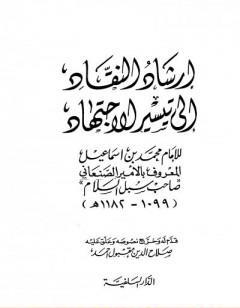 إرشاد النقاد
إلى تيسير الاجتهاد
للإمام محمد بن إسماعيل
المعروف بالأمير الصنعاني
"صاحب سبل السلام"
(١٠٩٩-١١٨٢هـ)
قدم له وخرج نصوصه وعلق عليه
صلاح الدين مقبول أحمد
الدار السلفية